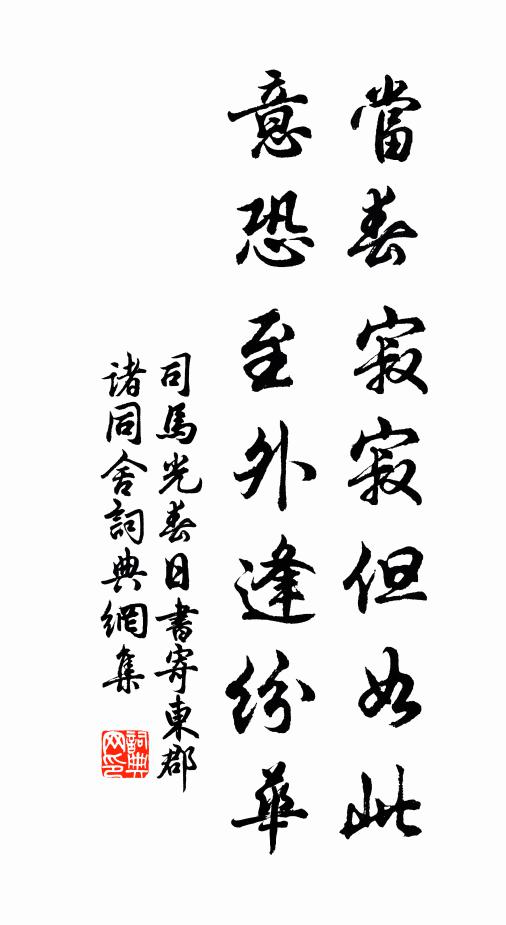 當春寂寂但如此
意恐至外逢紛華
司馬光春日書寄東郡
諸同舍詞典網集
詞典
网印